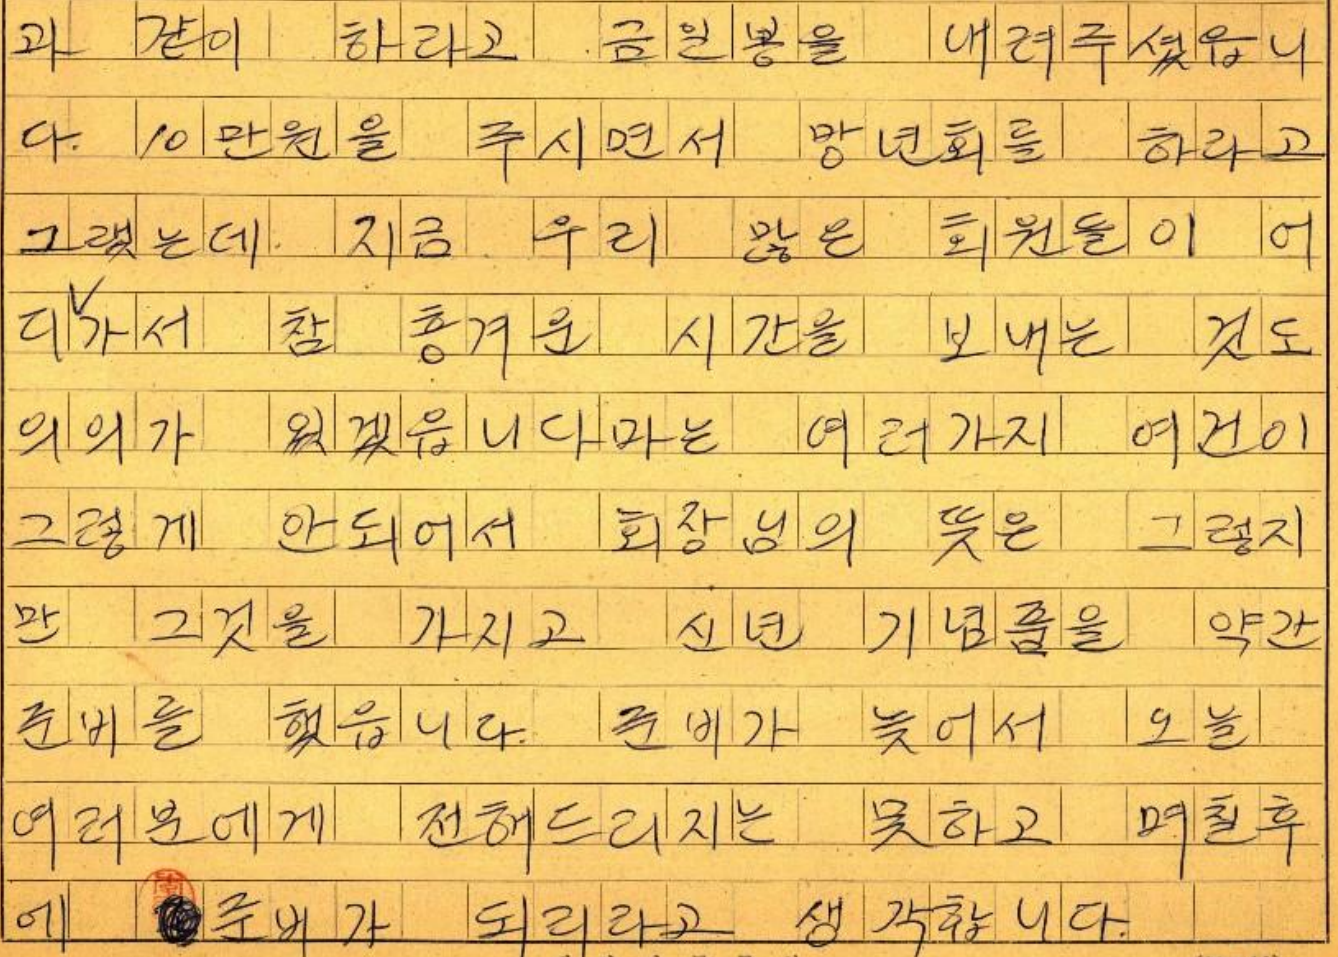 과 같이 하라고 금일봉을 내려주셨읍니
다. 10만원을 주시면서 망년회를 하라고
그랬는데. 지금 우리 많은 회원들이 어
디∨가서 참 흥겨운 시간을 보내는 것도
의의가 있겠읍니다마는 여러가지 여건이
그렇게 안되어서 회장님의 뜻은 그렇지
만 그것을 가지고 신년 기념품을 약간
준비를 했읍니다. 준비가 늦어서 오늘
여러분에게 전해드리지는 못하고 며칠후
에 준비가 되리라고 생각합니다.